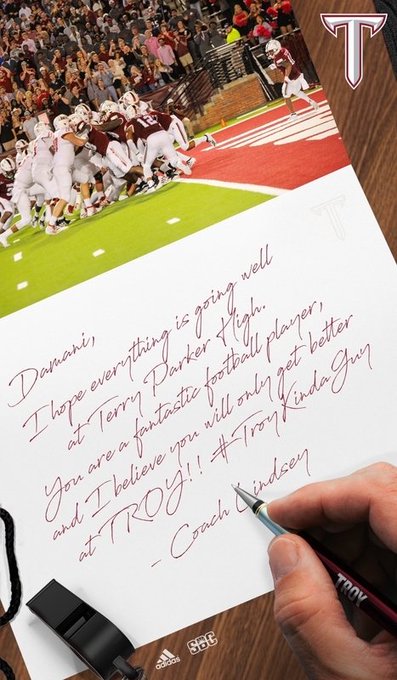 T
Damani,
I hope everything is going well
at Terry Parker High.
You are a fantastic football player,
and I believe you will only get better
at TROY!! #TroyKindaGuy
- Coach Lindsey
TROY
adidas
SBC